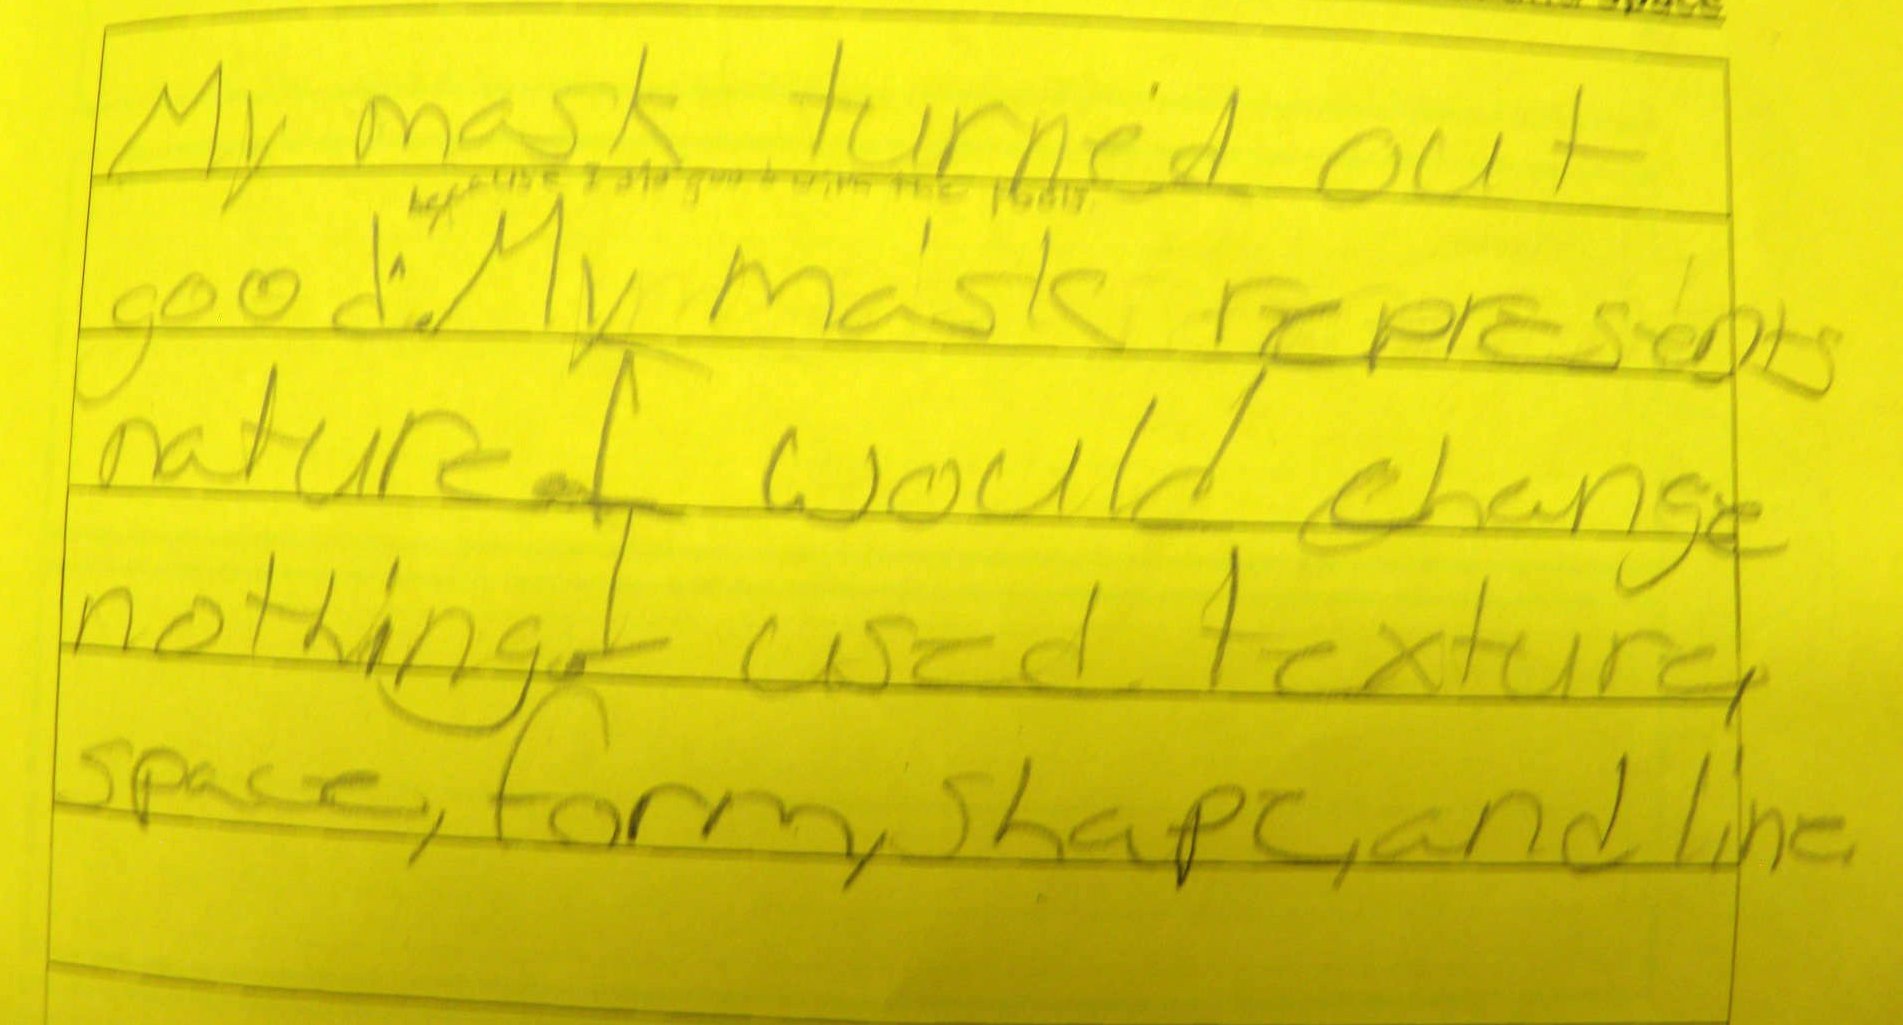 space
My mask turned out
because I did good with the
good. My mask represents
nature. I would change
nothing. I used texture,
space, form, shape, and line.